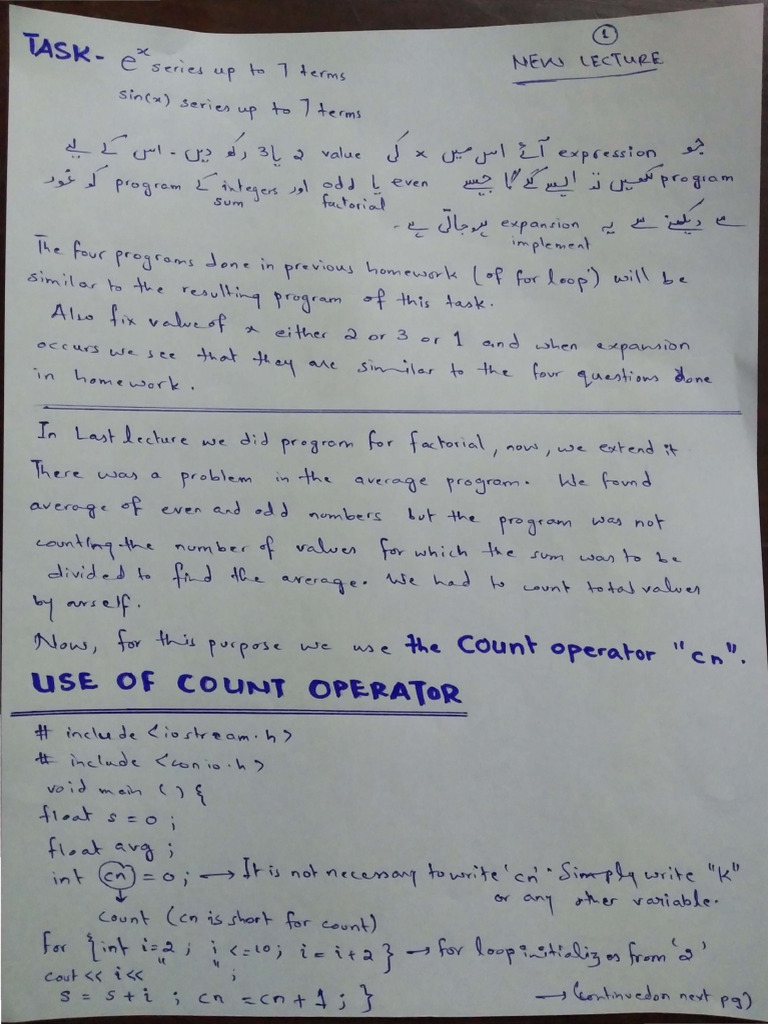 ①
TASK- eˣ series up to 7 terms
NEW LECTURE
sin(x) series up to 7 terms
جو expression آئے اس میں x کی value 2 یا 3 رکھ دیں - اس کے لیے
program لکھیں تو ایسے لگے گا جیسے even یا odd اور integers کے program کو غور
sum factorial
سے دیکھنے سے یہ expansion ہو جاتی ہے -
implement
The four programs done in previous homework (of for loop) will be
similar to the resulting program of this task.
Also fix value of x either 2 or 3 or 1 and when expansion
occurs we see that they are similar to the four questions done
in homework.
In Last lecture we did program for factorial, now, we extend it
There was a problem in the average program. We found
average of even and odd numbers but the program was not
counting the number of values for which the sum was to be
divided to find the average. We had to count total values
by ourself.
Now, for this purpose we use the Count operator "cn".
USE OF COUNT OPERATOR
# include <iostream.h>
# include <conio.h>
void main () {
float s = 0 ;
float avg ;
int cn = 0 ; → It is not necessary to write 'cn'. Simply write "K"
or any other variable.
↓
count (cn is short for count)
for {int i=2 ; i <=10; i = i+2 } → for loop initializes from '2'
cout << i << " " ;
s = s+i ; cn = cn + 1 ; } → (continued on next pg)